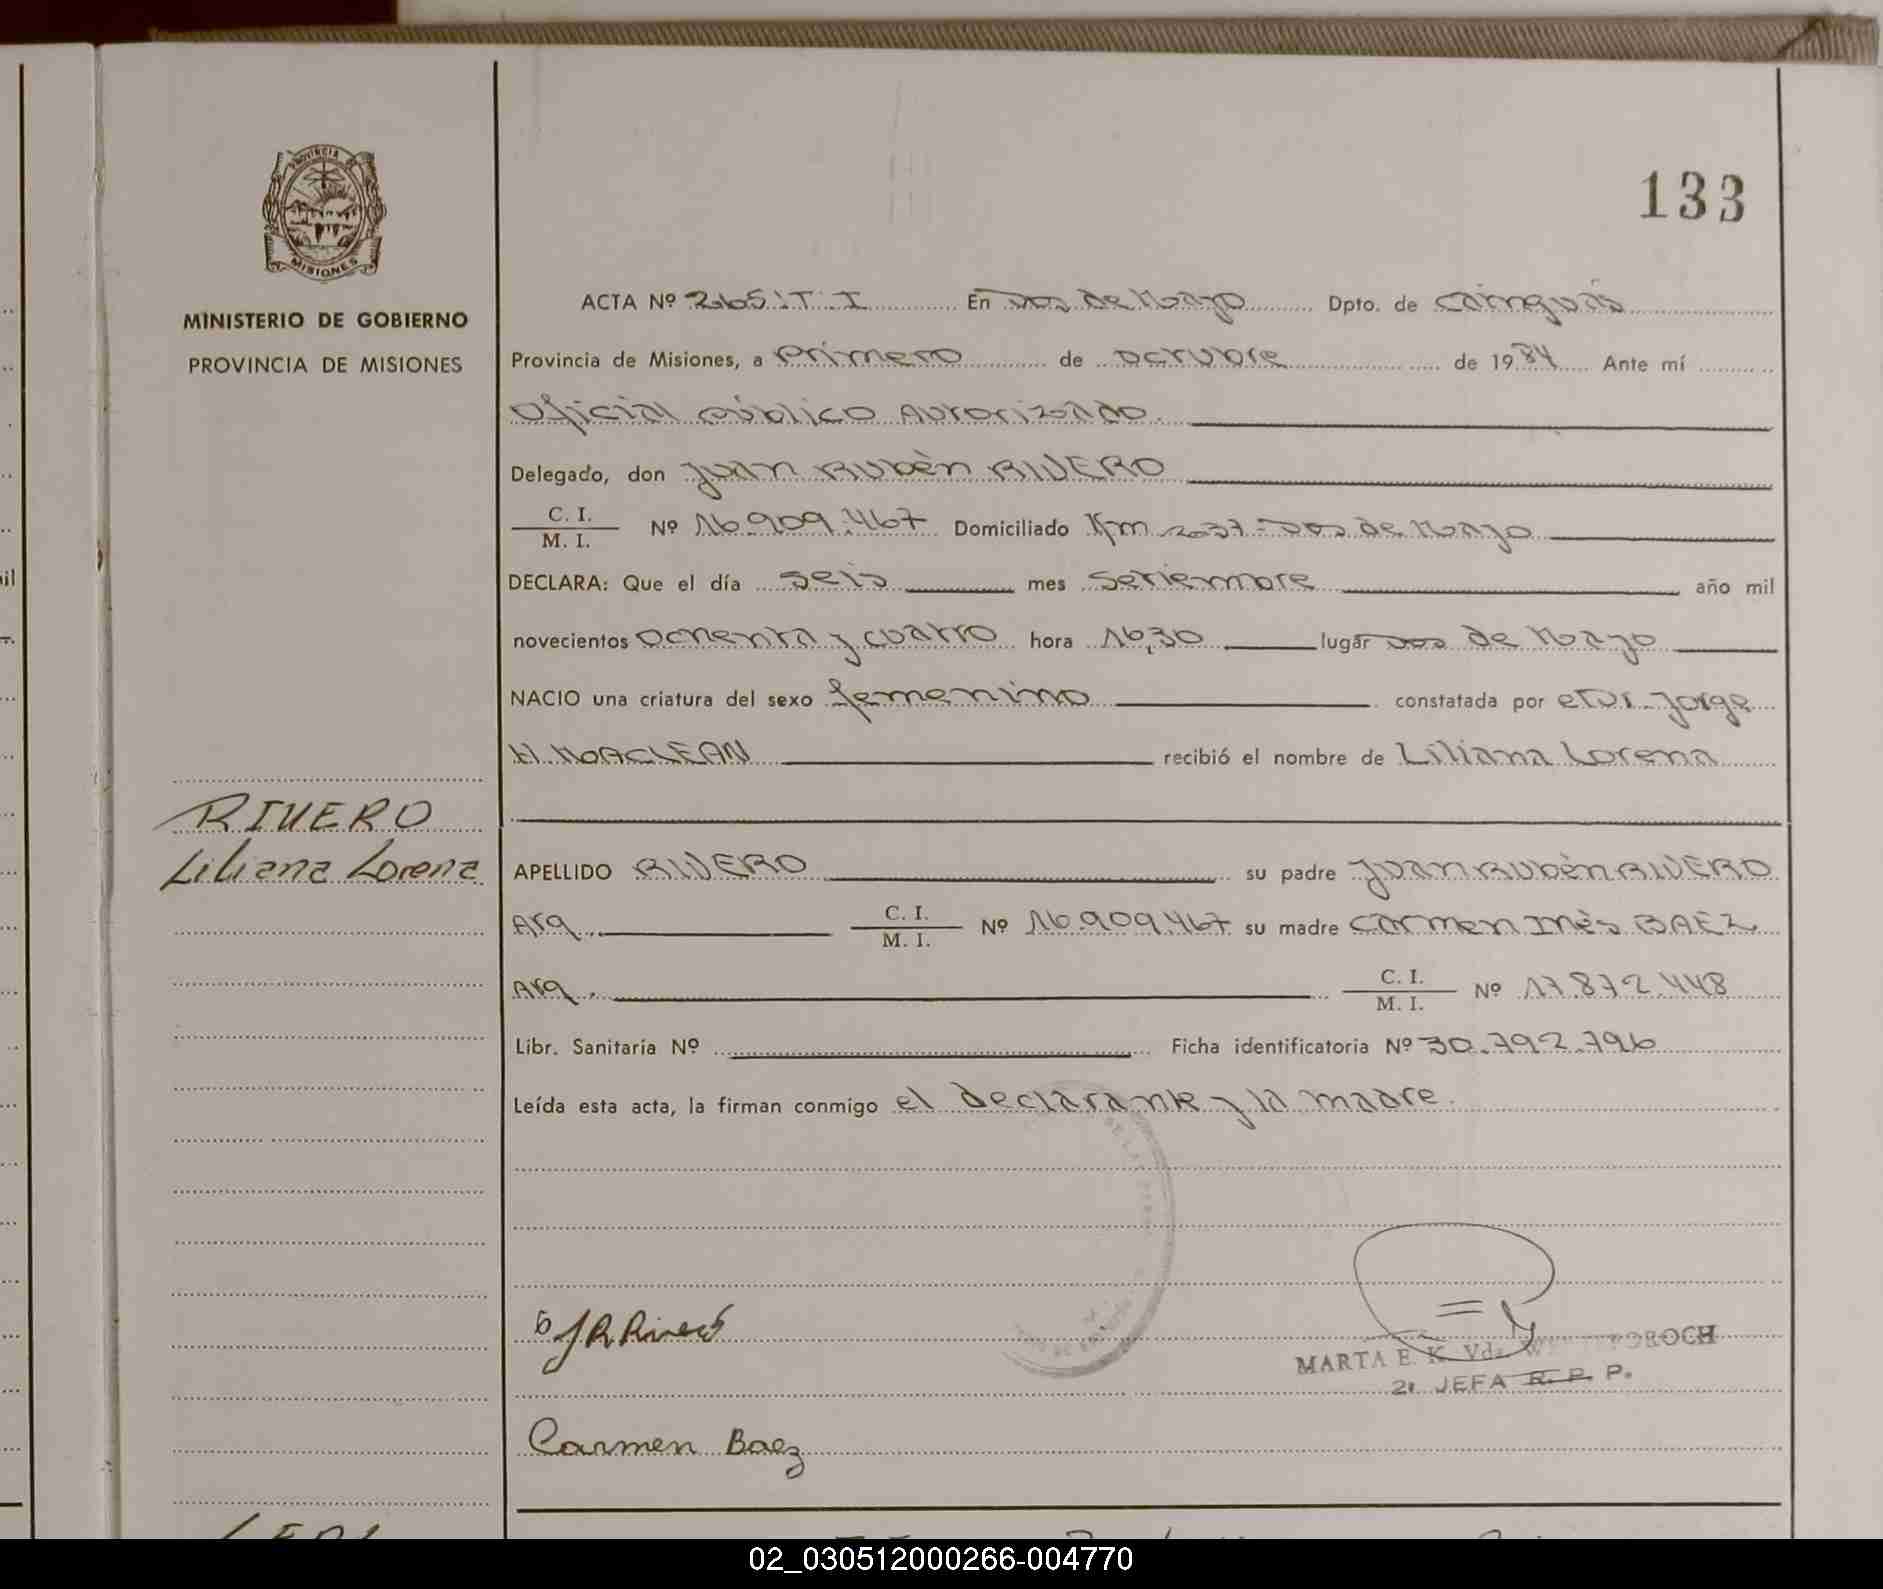 133
PROVINCIA DE
MISIONES
MINISTERIO DE GOBIERNO
PROVINCIA DE MISIONES
ACTA Nº 265 : T. I En Dos de Mayo Dpto. de Cainguás
Provincia de Misiones, a Primero de octubre de 1984 Ante mí
Oficial Público Autorizado.
Delegado, don Juan Rubén RIVERO
C. I.
M. I. Nº 16.909.467 Domiciliado Km 237 - Dos de Mayo
DECLARA: Que el día seis mes setiembre año mil
novecientos ochenta y cuatro hora 16,30 lugar Dos de Mayo
NACIO una criatura del sexo femenino constatada por Jorge
H. MACLEAN recibió el nombre de Liliana Lorena
RIVERO
Liliana Lorena
APELLIDO RIVERO su padre Juan Rubén RIVERO
Arg. C. I.
M. I. Nº 16.909.467 su madre Carmen Inés BAEZ
Arg. C. I.
M. I. Nº 17.872.448
Libr. Sanitaria Nº Ficha identificatoria Nº 30.792.796
Leída esta acta, la firman conmigo el declarante y la madre.
JR Rivero
MARTA E. K. Vda.
2ª JEFA R. P. P.
Carmen Baez
02_030512000266-004770